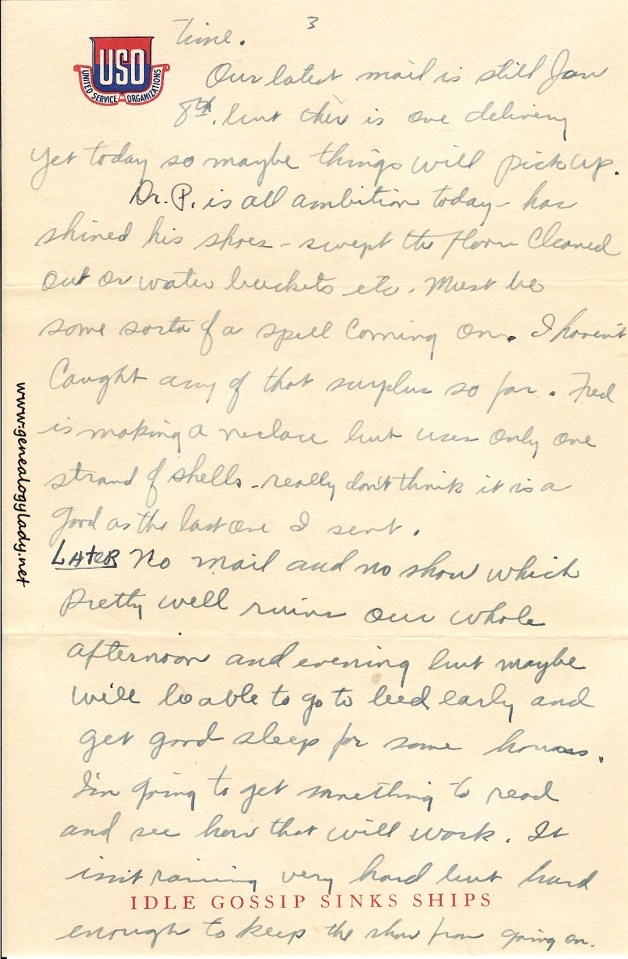 3
USO
UNITED SERVICE ORGANIZATIONS
time.
Our latest mail is still Jan
8th. but there is one delivery
yet today so maybe things will pick up.
Dr. P. is all ambition today - has
shined his shoes - swept the floor cleaned
out our water buckets etc. Must be
some sorta of a spell coming on. I haven't
caught any of that surplus so far. Fred
is making a neclace but uses only one
strand of shells - really don't think it is a
good as the last one I sent.
LATER No mail and no show which
pretty well ruins our whole
afternoon and evening but maybe
will be able to go to bed early and
get good sleep for some hours.
I'm going to get something to read
and see how that will work. It
isn't raining very hard but hard
IDLE GOSSIP SINKS SHIPS
enough to keep the show from going on.
www.genealogylady.net